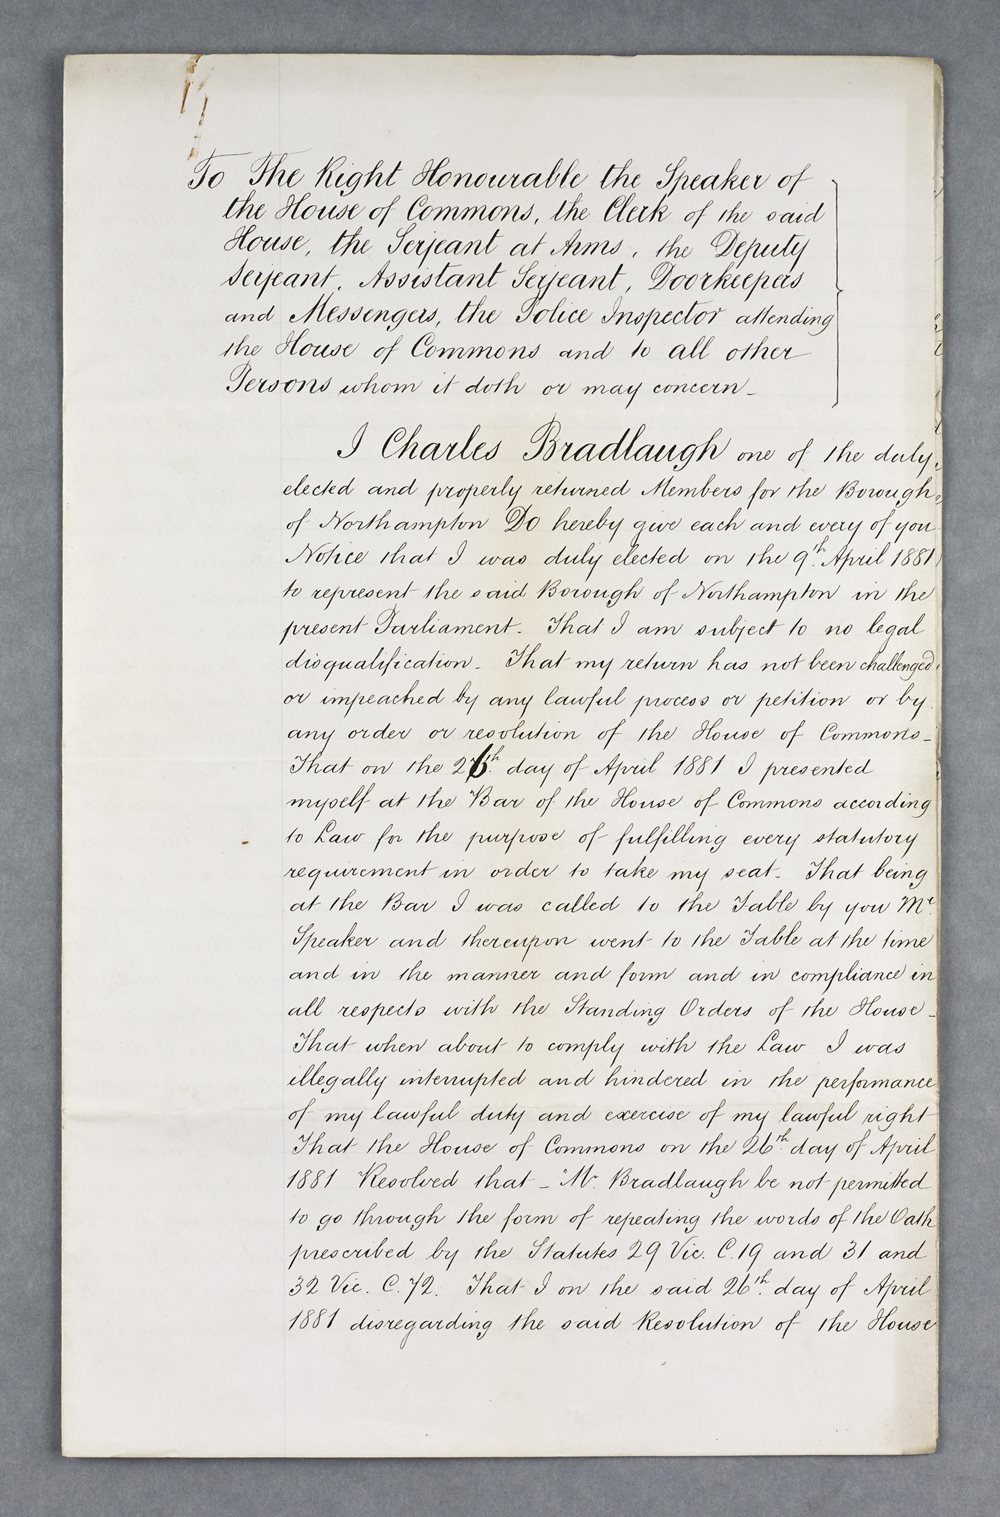 To The Right Honourable the Speaker of
the House of Commons, the Clerk of the said
House, the Serjeant at Arms, the Deputy
Serjeant, Assistant Serjeant, Doorkeepers
and Messengers, the Police Inspector attending
the House of Commons and to all other
Persons whom it doth or may concern _
I Charles Bradlaugh one of the duly
elected and properly returned Members for the Borough
of Northampton Do hereby give each and every of you
Notice that I was duly elected on the 9th. April 1881
to represent the said Borough of Northampton in the
present Parliament. That I am subject to no legal
disqualification _ That my return has not been challenged
or impeached by any lawful process or petition or by
any order or resolution of the House of Commons _
That on the 26th. day of April 1881 I presented
myself at the Bar of the House of Commons according
to Law for the purpose of fulfilling every statutory
requirement in order to take my seat. That being
at the Bar I was called to the Table by you Mr.
Speaker and thereupon went to the Table at the time
and in the manner and form and in compliance in
all respects with the Standing Orders of the House _
That when about to comply with the Law I was
illegally interrupted and hindered in the performance
of my lawful duty and exercise of my lawful right
That the House of Commons on the 26th. day of April
1881 Resolved that _ "Mr. Bradlaugh be not permitted
to go through the form of repeating the words of the Oath
prescribed by the Statutes 29 Vic. C. 19 and 31 and
32 Vic. C. 72. That I on the said 26th. day of April
1881 disregarding the said Resolution of the House